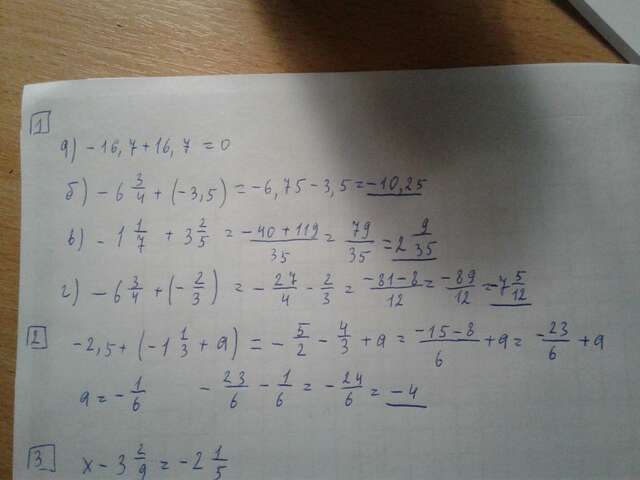 1
а) -16,7+16,7=0
б) -6 3/4 + (-3,5) = -6,75-3,5 = -10,25
в) -1 1/7 + 3 2/5 = (-40+119)/35 = 79/35 = 2 9/35
г) -6 3/4 + (-2/3) = -27/4 - 2/3 = (-81-8)/12 = -89/12 = -7 5/12
2 -2,5+(-1 1/3 + a) = -5/2 - 4/3 + a = (-15-8)/6 + a = -23/6 + a
a = -1/6 -23/6 - 1/6 = -24/6 = -4
3 x - 3 2/9 = -2 1/5